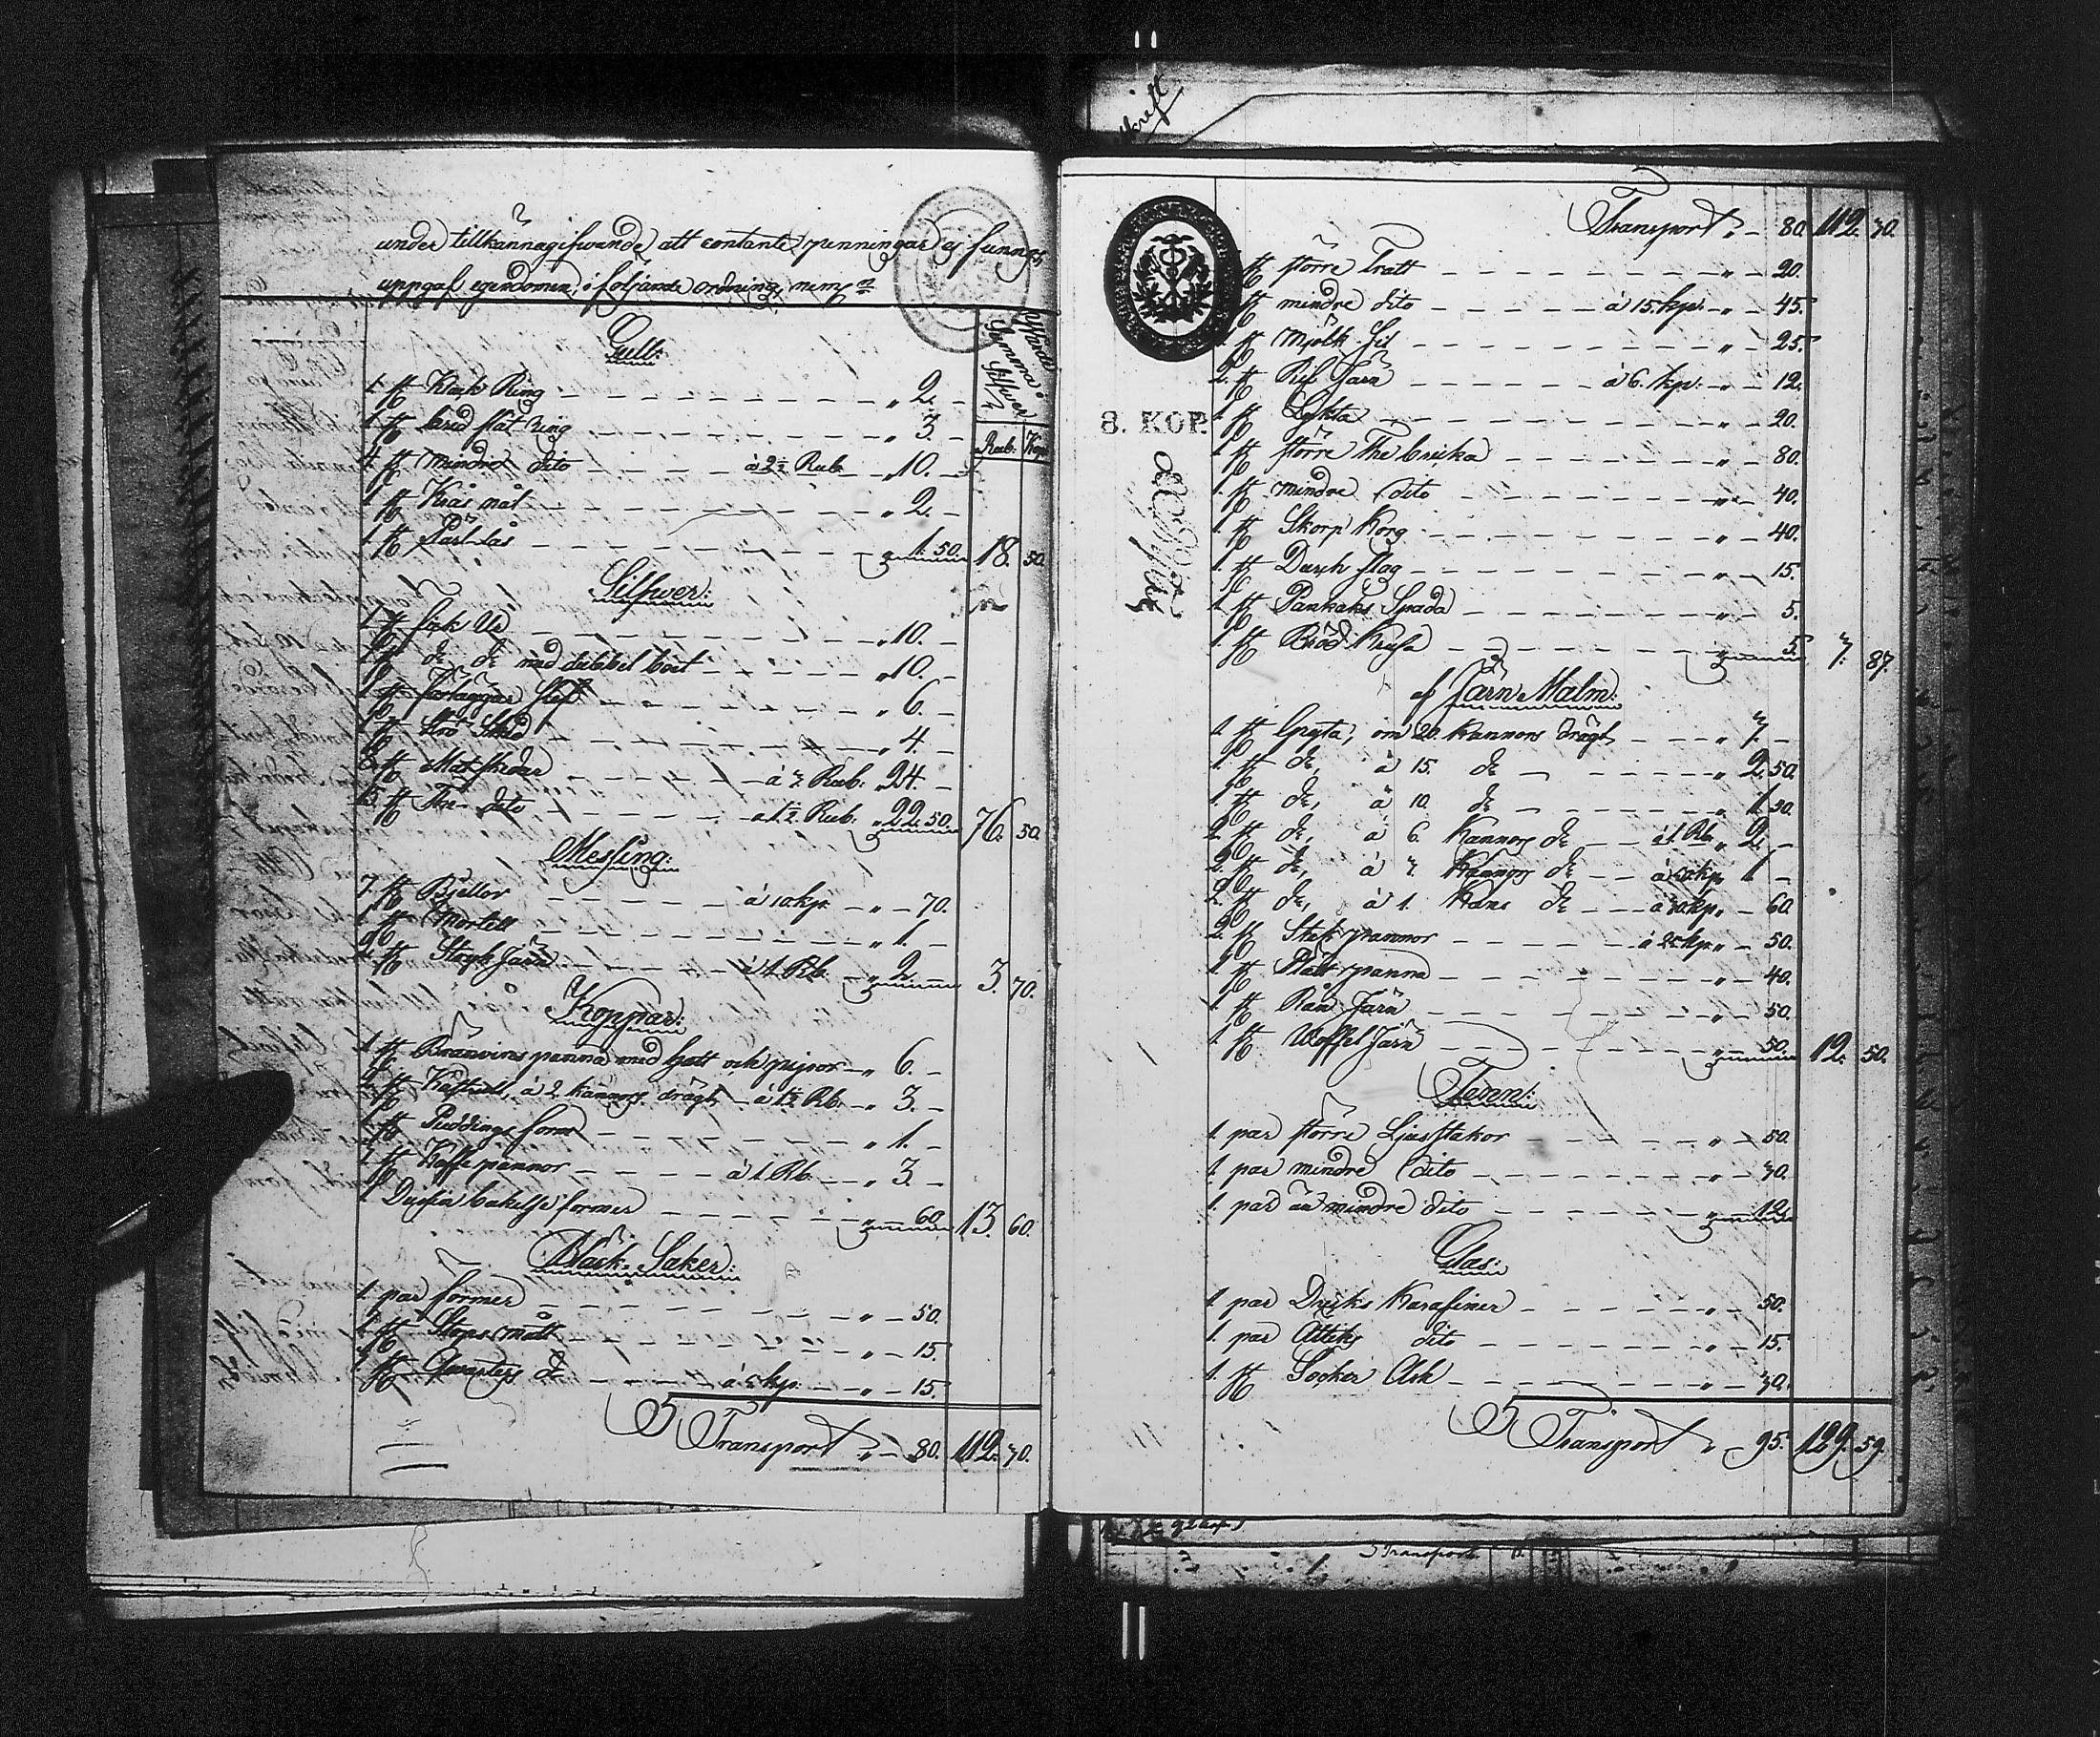 under tillkännagifwande, att contante penningar ej funnos
uppgafs egendomen, i följande ordning, nemn
Wärde
Summa i
Silfver
Rub. Kop.
Guld:
1. st Ring — „ 2. —
1. st slät ring — „ 3. —
4. st mindre dito — à 2½ Rub. „ 10. —
1. st Krås nål — „ 2. —
1. st Pärl-lås — „ 1. 50. 18. 50.
Silfwer:
1. st fick Ur — „ 10. —
1. st do do med dubbel boet — „ 10. —
1. st Förläggar Slef — „ 6. —
1. st Strö Sked — „ 4. —
8. st Mat skedar — à 3 Rub. „ 24. —
15. st The- dito — à 1½ Rub. „ 22. 50. 76. 50.
Messing:
7. st Bjellor — à 10 kp. — „ — 70.
1. st Mortell — „ 1. —
2. st Stryk Järn — à 1. Rb. — „ 2. — 3. 70.
Koppar:
1. st Bränvins panna med hatt och pipor — „ 6. —
2. st Kastrull, à 2 kannors drägt — à 1½ Rb. — „ 3. —
1. st Puddings form — „ 1. —
3. st Kaffe pannor — à 1. Rb. — „ 3. —
1. Dussin bakelse former — „ — 60. 13. 60.
Bläck-Saker:
1. par former — „ — 50.
1. st Stops mått — „ — 15.
3. st Qvarters do — à 5 kp. — „ — 15.
Transport „ — 80. 112. 30.
8. KOP.
Transport „ — 80. 112. 30.
1. st större Tratt — „ — 20.
3. st mindre dito — à 15. kp. — „ — 45.
1. st Mjölk Sil — „ — 25.
2. st Rif Järn — à 6. kp. — „ — 12.
1. st Lykta — „ — 20.
1. st större The bricka — „ — 80.
1. st mindre dito — „ — 40.
1. st Skorp Korg — „ — 40.
1. st Durch slag — „ — 15.
1. st Pankaks Spada — „ — 5.
1. st Bröd — „ — 5. 3. 87.
af Järn Malm:
1. st Gryta, om 20. kannors drägt — „ 3 —
1. st do, à 15. do — „ 2. 50.
1. st do, à 10. do — „ 1. 50.
2. st do, à 6. Kannors do — à 1. Rb. „ 2. —
2. st do, à 3. Kannors do — à 50 kp. „ 1 —
2. st do, à 1. Kans do — à 30 kp. „ — 60.
2. st Stek pannor — à 25 kp. „ — 50.
1. st Plätt panna — „ — 40.
1. st Rån Järn — „ — 50.
1. st Woffel Järn — „ — 50. 12. 50.
Tenn:
1. par större Ljusstakar — „ — 50.
1. par mindre dito — „ — 30.
1. par än mindre dito — „ — 12.
Glas:
1. par Dricks Karafiner — „ — 50.
1. par Ättiks dito — „ — 15.
1. st Socker Ask — „ — 30.
Transport „ — 95. 129. 59.